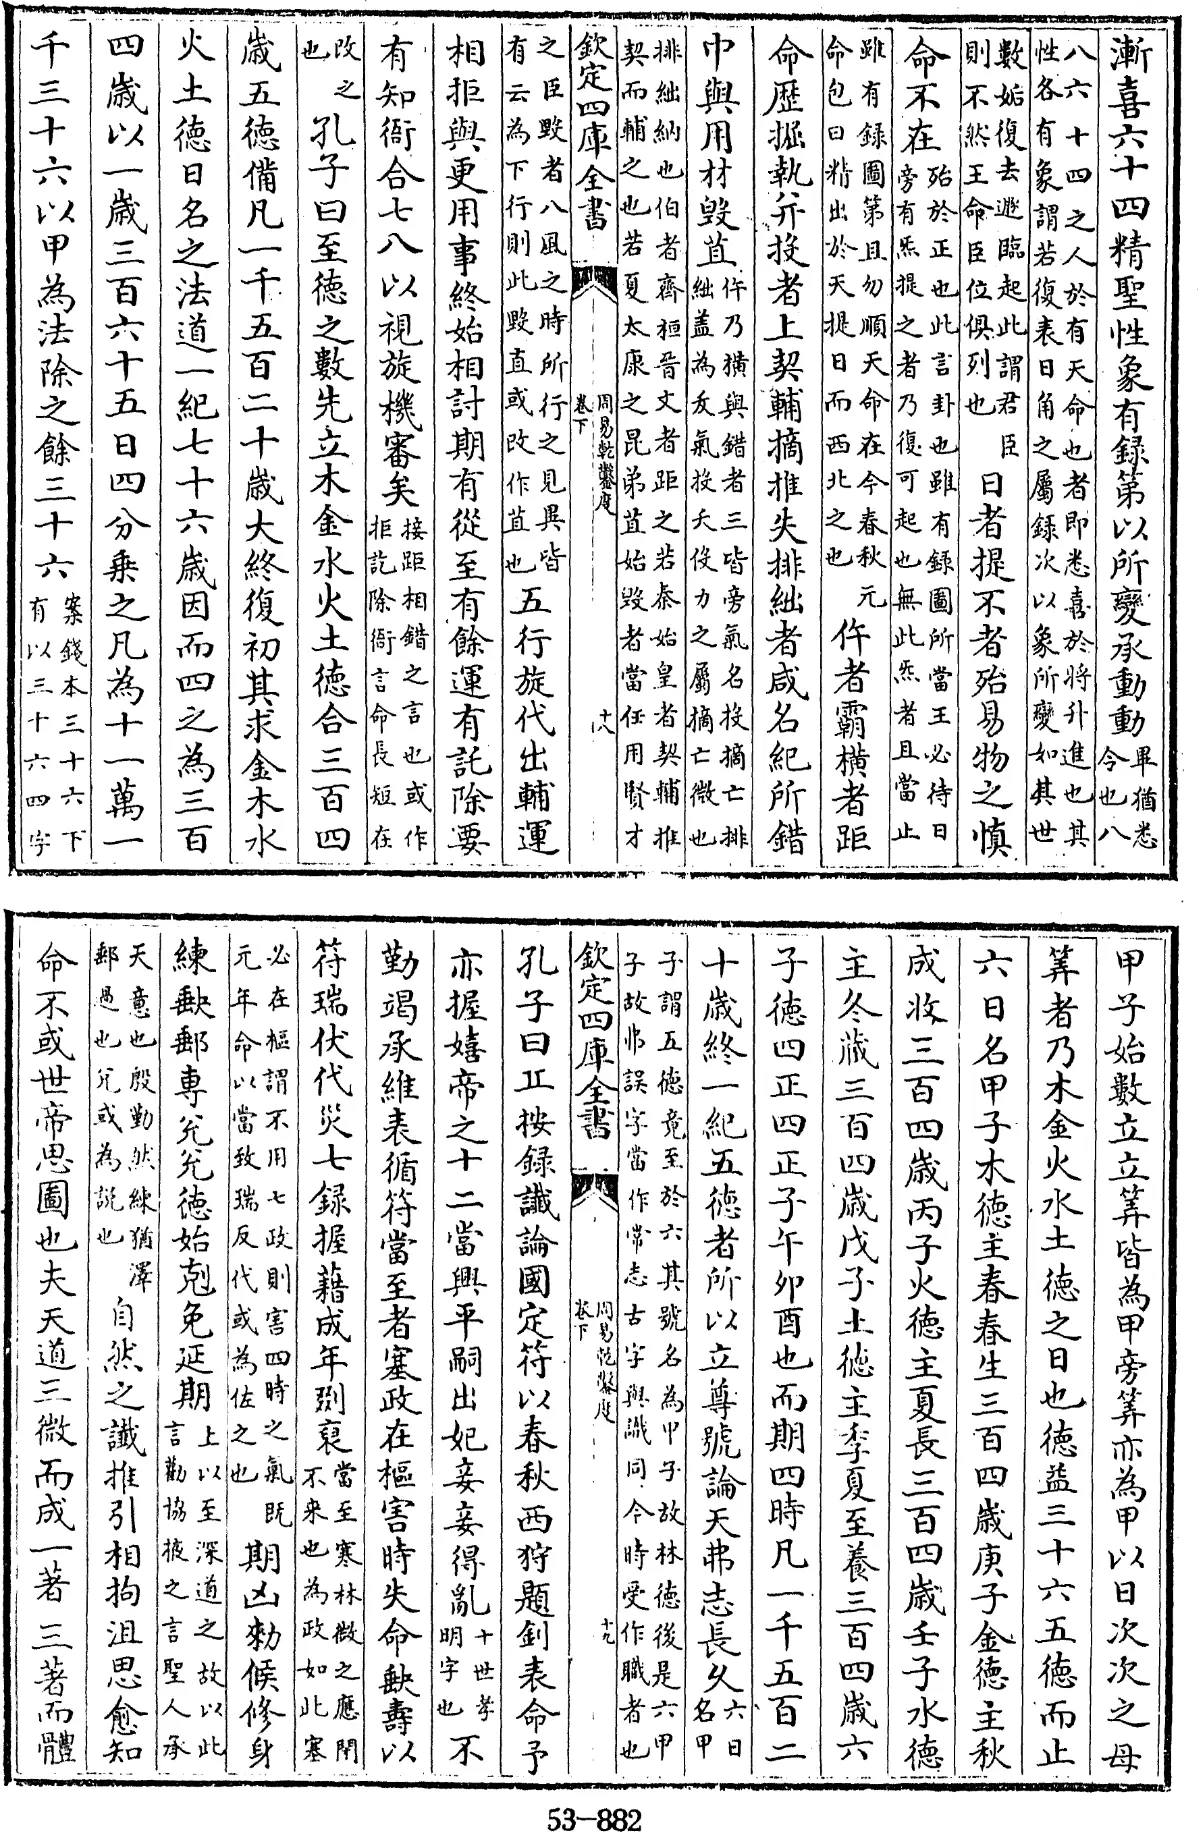 漸喜六十四精聖性象有錄第以所變承動動畢猶悉令也八
八六十四之人於有天命也者即悉喜於將升進也其
性各有象謂若復表日角之屬錄次以象所變如其世
數姤復去遯臨起此謂君臣
則不然王命臣位俱列也曰者提不者殆易物之慎
命不在殆於正也此言卦也雖有錄圖所當王必待日
旁有炁提之者乃復可起也無此炁者且當止
雖有錄圖第且勿順天命在今春秋元
命包曰精出於天提日而西北之也仵者霸橫者距
命歷掘執并投者上契輔摘推失排絀者咸名紀所錯
巾與用材毀苴仵乃橫與錯者三皆旁氣名投摘亡排
絀蓋為友氣投夭伎力之屬摘亡微也
排絀納也伯者齊桓晉文者距之若秦始皇者契輔推
契而輔之也若夏太康之昆弟苴始毀者當任用賢才
欽定四庫全書
周易乾鑿度
卷下
十八
之臣毀者八風之時所行之見異皆
有云為下行則此毀直或改作苴也五行旋代出輔運
相拒與更用事終始相討期有從至有餘運有託除要
有知衙合七八以視旋機審矣接距相錯之言也或作
拒訖除衙言命長短在
改之
也孔子曰至德之數先立木金水火土德合三百四
歲五德備凡一千五百二十歲大終復初其求金木水
火土德日名之法道一紀七十六歲因而四之為三百
四歲以一歲三百六十五日四分乘之凡為十一萬一
千三十六以甲為法除之餘三十六案錢本三十六下
有以三十六四字
甲子始數立立筭皆為甲旁筭亦為甲以日次次之母
筭者乃木金火水土德之日也德益三十六五德而止
六日名甲子木德主春春生三百四歲庚子金德主秋
成收三百四歲丙子火德主夏長三百四歲壬子水德
主冬藏三百四歲戊子土德主季夏至養三百四歲六
子德四正四正子午卯酉也而期四時凡一千五百二
十歲終一紀五德者所以立尊號論天弗志長久六日
名甲
子謂五德竟至於六其號名為甲子故林德後是六甲
子故弗誤字當作常志古字與識同今時受作職者也
欽定四庫全書
周易乾鑿度
卷下
十九
孔子曰丘按錄讖論國定符以春秋西狩題釗表命予
亦握嬉帝之十二當興平嗣出妃妾妾得亂十世孝
明字也不
勤竭承維表循符當至者塞政在樞害時失命缺壽以
符瑞伏代災七錄握藉成年剟衰當至寒林微之應閉
不來也為政如此塞
必在樞謂不用七政則害四時之氣既
元年命以當致瑞反代或為佐之也期凶勑候修身
練缺郵專兊兊德始剋免延期上以至深道之故以此
言勸協掖之言聖人承
天意也殷勤然練猶澤
郵過也兊或為說也自然之讖推引相拘沮思愈知
命不或世帝思圖也夫天道三微而成一著三著而體
53—882